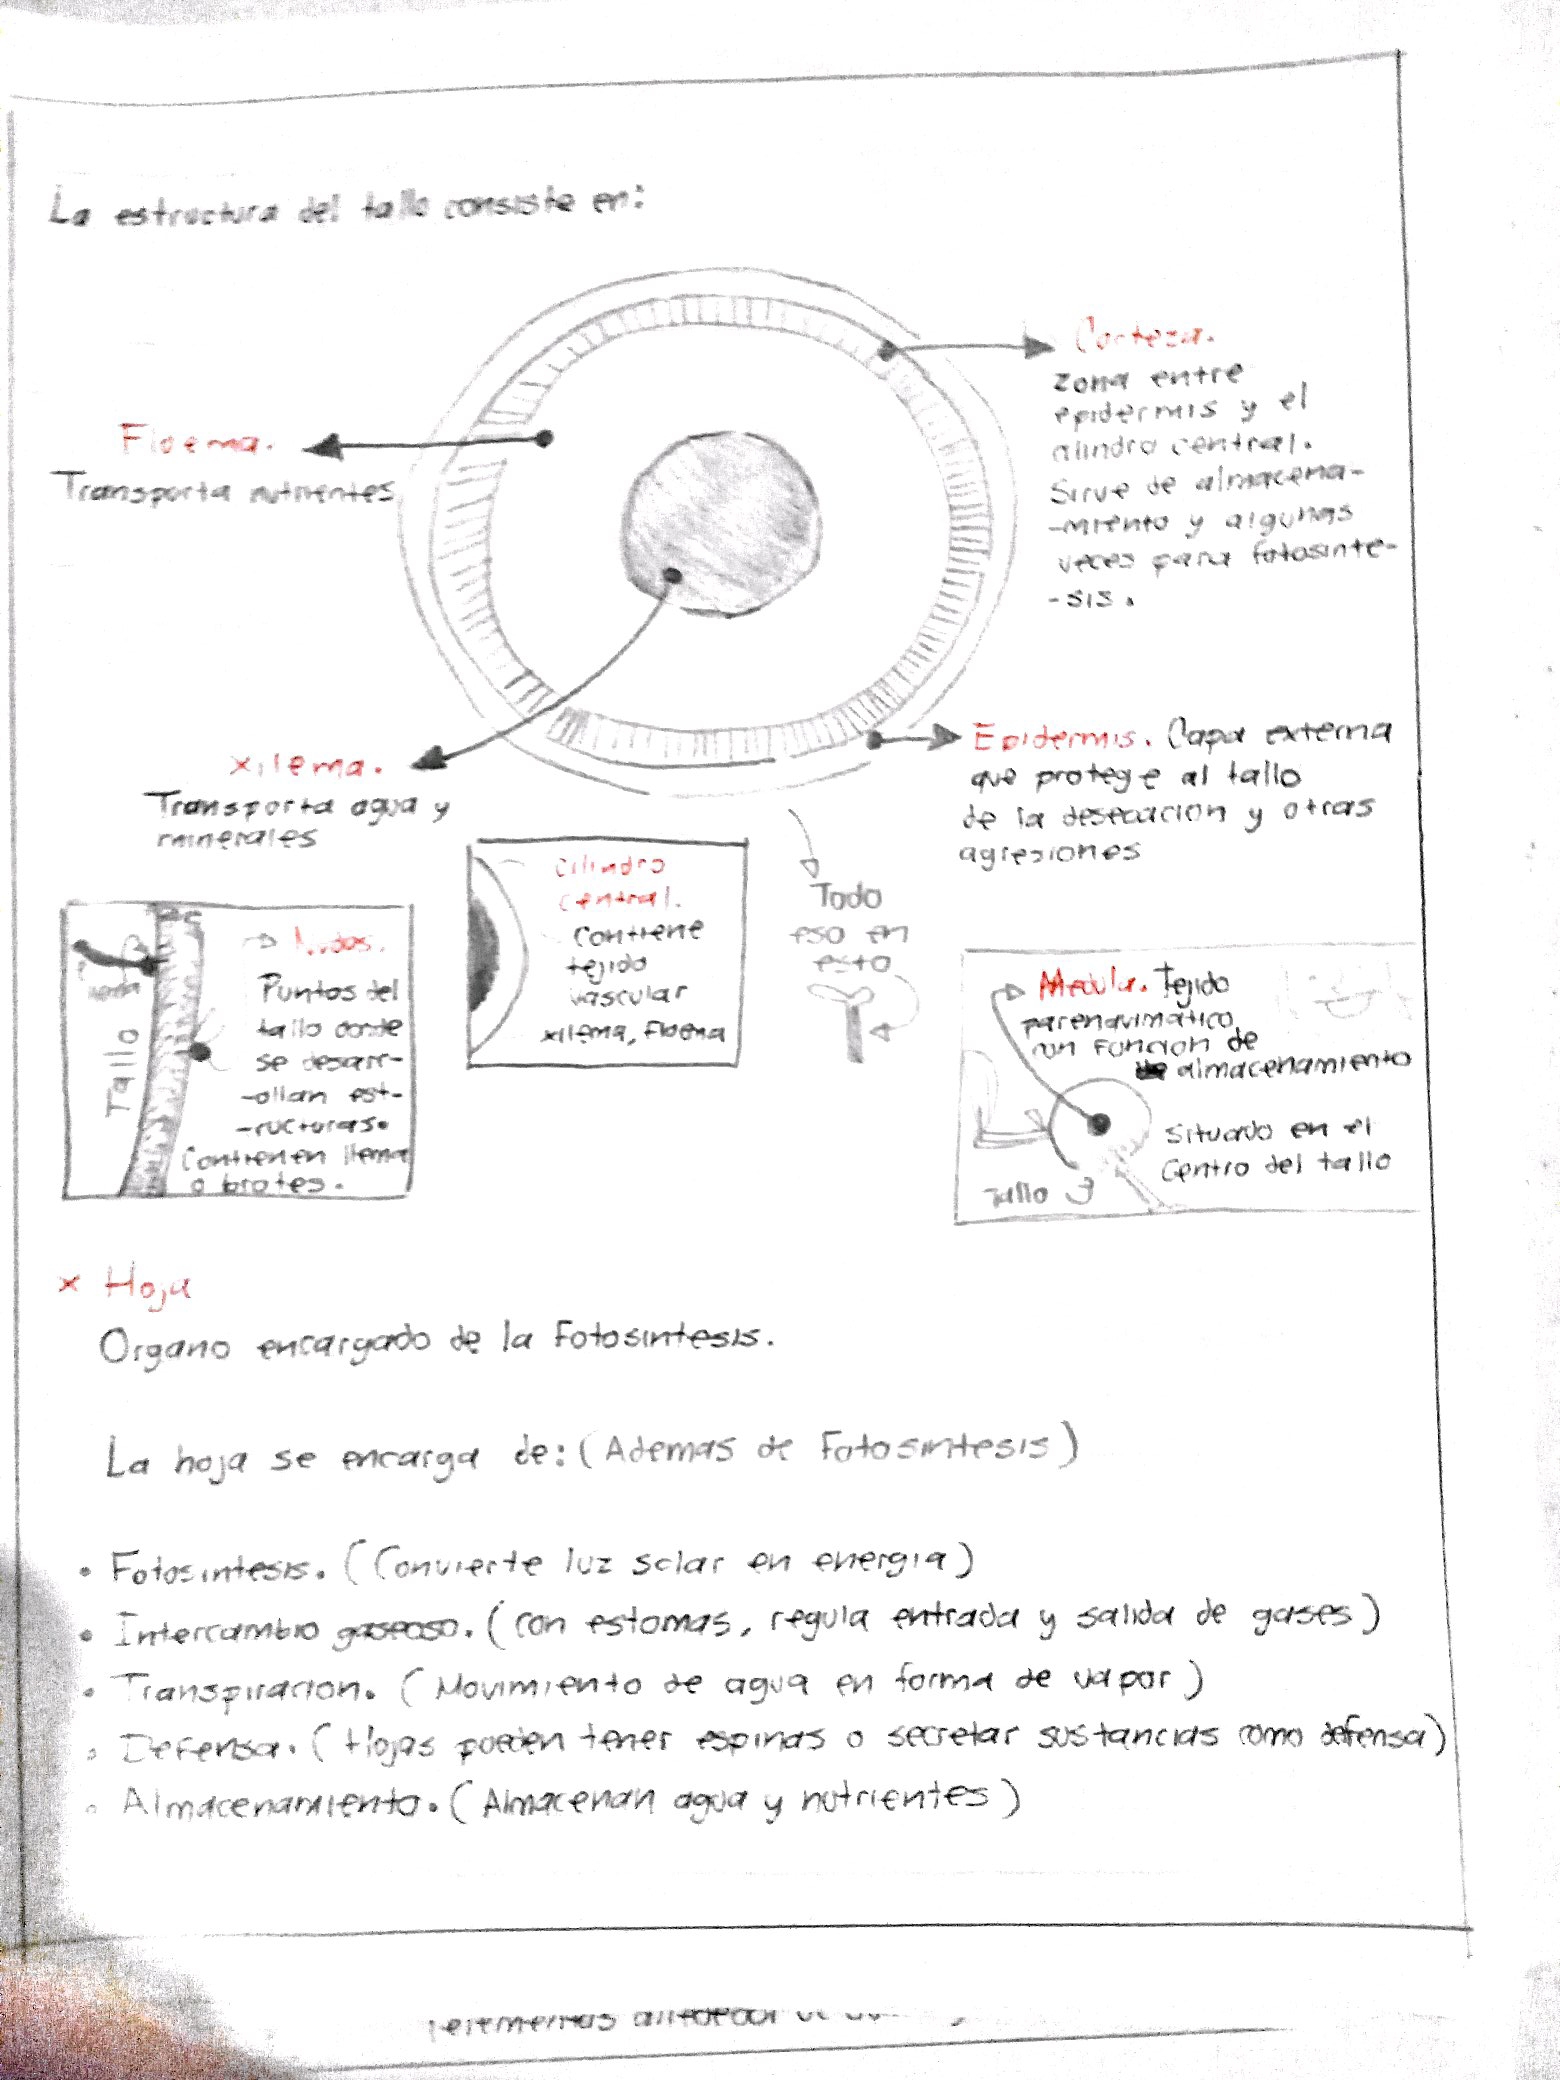 La estructura del tallo consiste en:
Floema.
Transporta nutrientes
Corteza.
zona entre
epidermis y el
cilindro central.
Sirve de almacena-
-miento y algunas
veces para fotosinte-
-sis.
Xilema.
Transporta agua y
minerales
Epidermis. Capa externa
que protege al tallo
de la desecacion y otras
agresiones
Nudos.
Puntos del
tallo donde
se desarr-
-ollan est-
-ructuras.
Contienen llema
o brotes.
Tallo
Cilindro
central.
Contiene
tejido
vascular
xilema, Floema
Todo
eso en
esto
Medula. Tejido
parenquimático
con funcion de
almacenamiento
Situado en el
Centro del tallo
Tallo
x Hoja
Organo encargado de la Fotosintesis.
La hoja se encarga de: (Ademas de Fotosintesis)
• Fotosintesis. (Convierte luz solar en energia)
• Intercambio gaseoso. (con estomas, regula entrada y salida de gases)
• Transpiracion. (Movimiento de agua en forma de vapor)
• Defensa. (Hojas pueden tener espinas o secretar sustancias como defensa)
• Almacenamiento. (Almacenan agua y nutrientes)